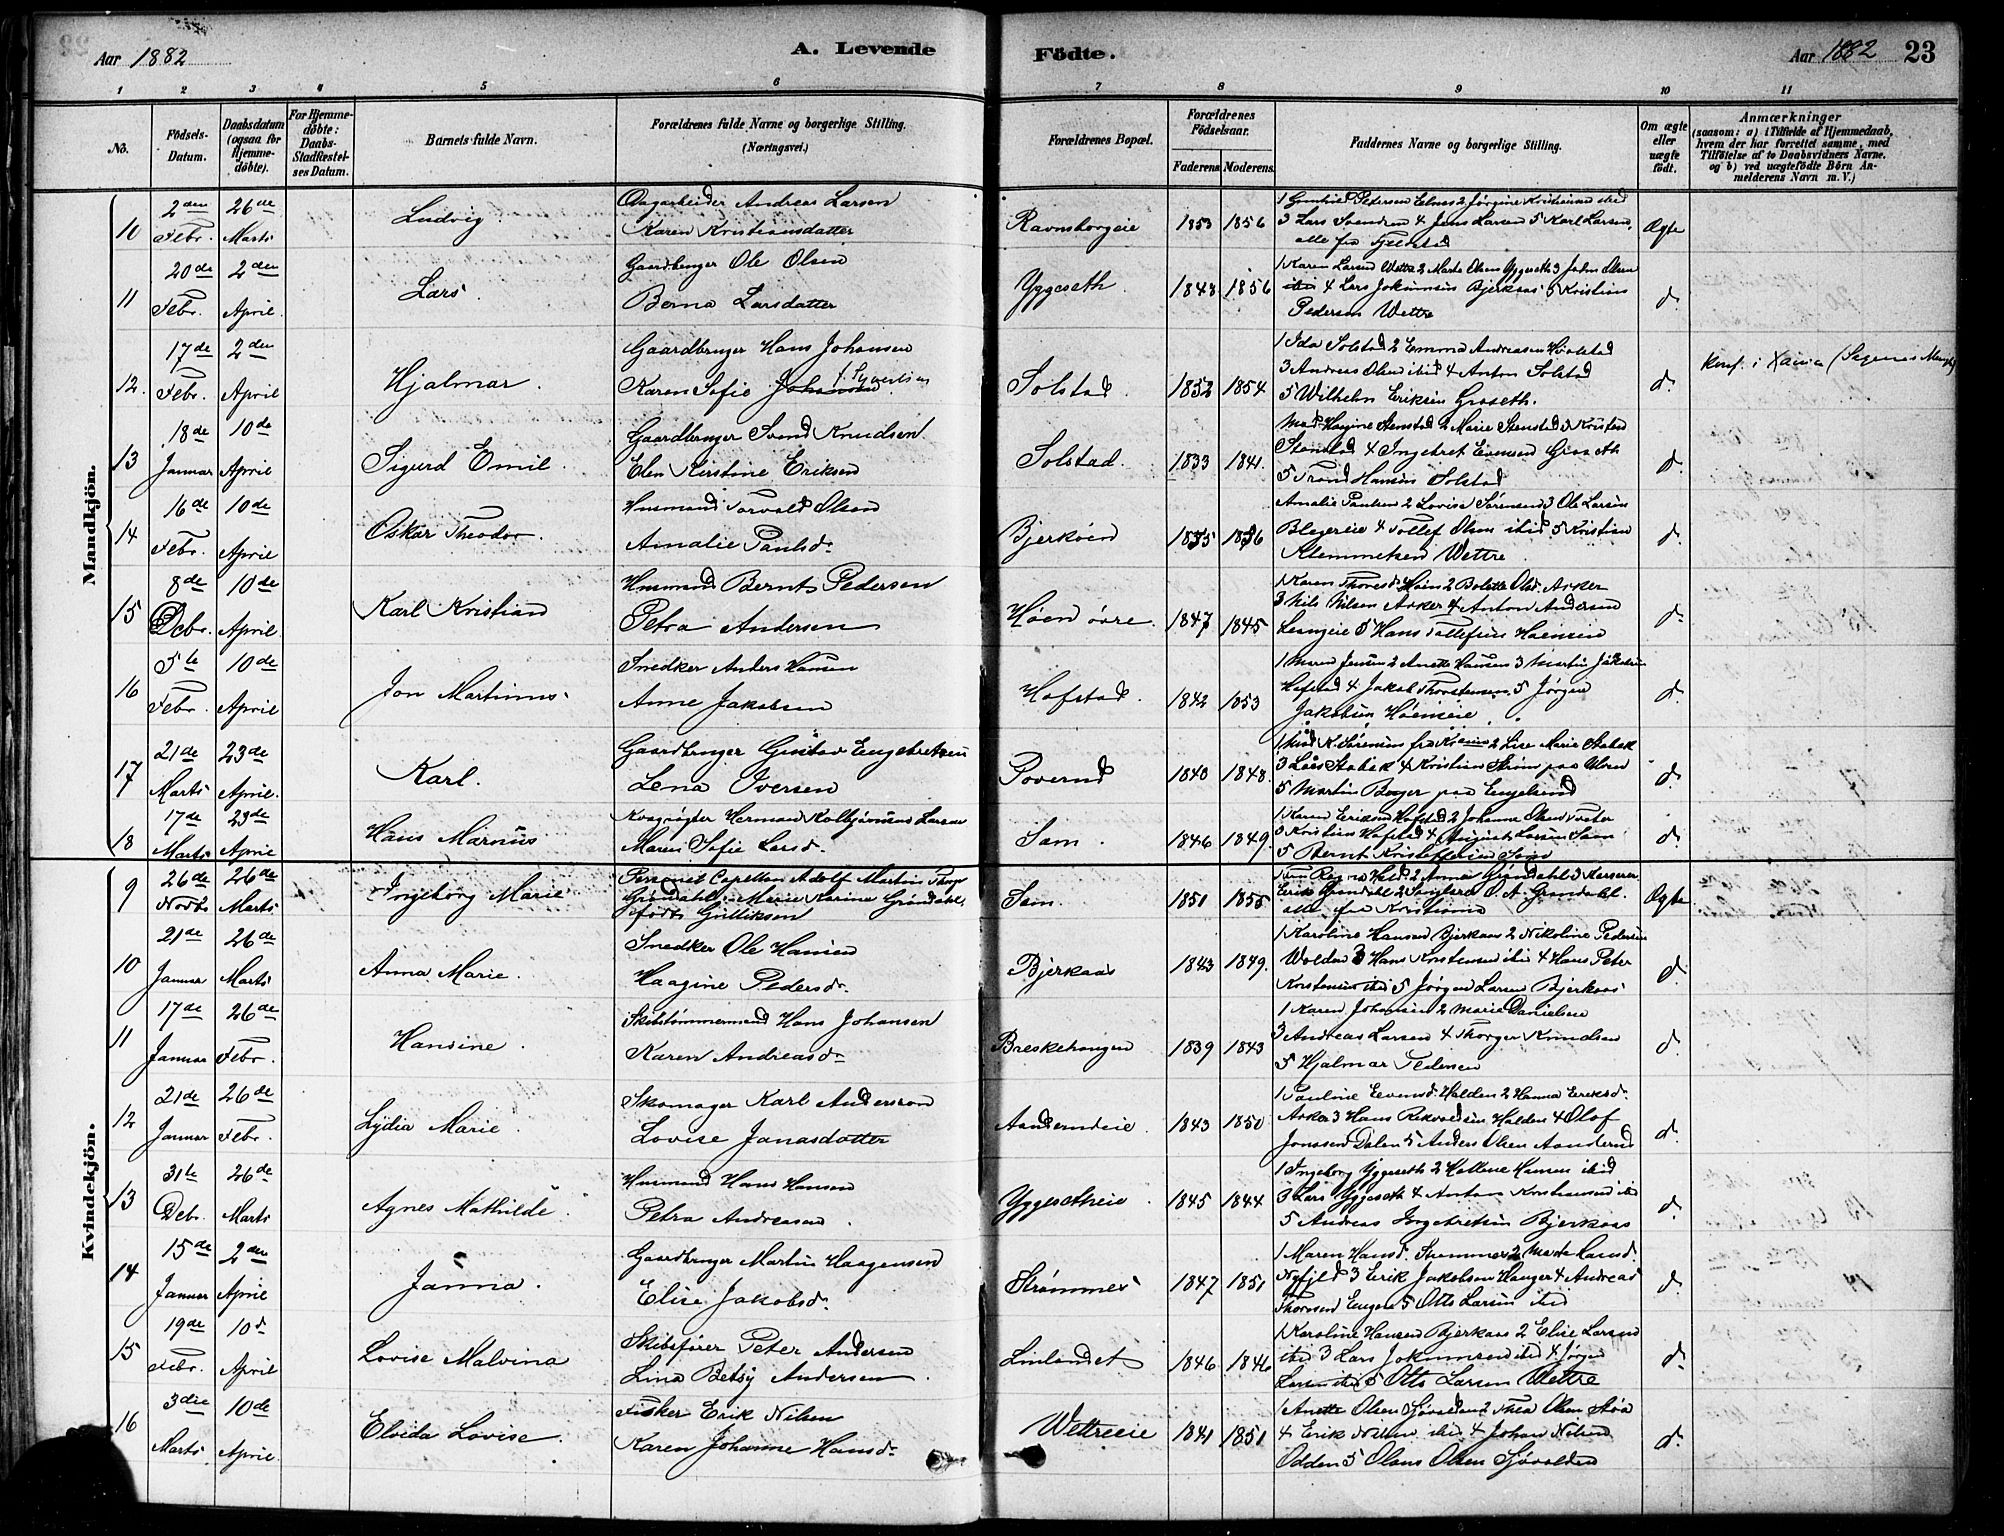 Aar 1882
A. Levende
Födte.
Aar 1882 23
1 2 3 4 5 6 7 8 9 10 11
No.
Födsels-Datum.
Daabsdatum (ogsaa for Hjemme-døbte).
For Hjemme-døbte: Daabs-Stadfæstel-ses Datum.
Barnets fulde Navn.
Forældrenes fulde Navne og borgerlige Stilling.
(Næringsvei.)
Forældrenes Bopæl.
Forældrenes Födselsaar.
Faderens. Moderens.
Faddernes Navne og borgerlige Stilling.
Om ægte eller uægte födt.
Anmærkninger
(saasom: a) i Tilfælde af Hjemmedaab,
hvem der har forrettet samme, med
Tilföielse af to Daabsvidners Navne.
og b) ved uægtefödte Börn An-
melderens Navn m. V.)
Mandkjön.
10 2den Febr. 26de Marts Ludvig
Andreas Larsen
Karen Kristiansdatter
Ravnsborgeie 1853 1856
3 Lars Svendsen 4 Jens Larsen 5 Karl Larsen,
alle fra
Ægte
11 20de Febr. 2den April Lars.
Gaardbruger Ole Olsen
Berna Larsdatter
Yggeseth. 1843 1856
1 Karen Larsen Wettre 2 Marte Olsen Yggeseth 3 John Olsen
ibid 4 Lars Johannesen Bjerkaas 5 Kristian
Pedersen Wettre
do
12. 17de Febr. 2den April Hjalmar.
Gaardbruger Hans Johansen
Karen Sofie
Solstad. 1852 1854
1 Ida Solstad 2 Emma Andreasen
3 Andreas Olsen ibid 4 Anton Solstad
5 Wilhelm Eriksen Groseth.
do
Konf. i Xania
13 18de Januar 10de April Sigurd Emil.
Gaardbruger Svend Knudsen
Elen Kirstine Eriksen
Solstad. 1833 1841.
Mad. Haagine Stenstad 2 Marie Stenstad 3 Kristen
Stenstad 4 Ingebret Evensen Groseth
5 Trond Hansen Solstad
do
14 16de Febr. 10de April Oskar Theodor.
Husmand Torvald Olsen
Amalie Paulsd.
Bjerkøen
Amalie Paulsen 2 Lovise Sørensen 3 Ole Larsen
4 Tollef Olsen ibid 5 Kristian
Klemmetsen Wettre
do
15 8de Debr. 10de April Karl Kristian
Husmand Bernt Pedersen
Petra Andersen
Høen øvre. 1847 1845
1 Karen Thoresd. Høen 2 Bolette Olsd. Arker
3 Nils Nilsen Arker 4 Anton Andersen
5 Hans Tollefsen
do
16 5te Febr. 10de April Jon Martinus
Snedker Anders Hansen
Anne Jakobsen
Hofstad. 1842 1053
1 Maren Jensen 2 Anette Hansen 3 Martin Jakobsen
Hofstad 4 Jakob Thorstensen 5 Jørgen
Jakobsen Høenseie
do
17 21de Marts 23de April. Karl.
Gaardbruger Gustav Engebretsen
Lena Iversen
Poverud 1840 1848.
2 Lise Marie Stabæk
3 Lars Stabæk 4 Kristian Strøm paa
5 Martin Berger paa Engelsrud
do
18 17de Marts 23de April Hans Marius
Herman Kolbjørnsen Larsen
Maren Sofie Larsd.
Sem. 1846 1849.
1 Karen Eriksen Hofstad 2 Johanne Olsen Tveter
3 Kristian Hofstad 4 August Larsen Sem
5 Bernt Kristoffersen Sem
do
Kvindekjön.
9 26de Novbr 26de Marts Ingeborg Marie
Personel Capellan Adolf Martin
Grøndahl, Marie Karine Grøndahl,
født Gulliksen
Sem. 1851 1855
2 Anna Grøndahl 3
Erik Grøndahl O. A. Grøndahl.
alle fra Kristiania
Ægte
10 21de Januar 26de Marts Anna Marie.
Snedker Ole Hansen
Haagine Pedersd.
Bjerkaas 1843 1849.
1 Karoline Hansen Bjerkaas 2 Nikoline Pedersen
Wolden 3 Hans Kristensen ibid 4 Hans Peter
Kristensen ibid 5 Jørgen Larsen Bjerkaas
do
11 17de Januar 26de Febr. Hansine.
Skibstømmermand Hans Johansen
Karen Andreasd.
Breskehaugen 1839 1843
1 Karen Johansen 2 Marie Danielsen
3 Andreas Larsen 4 Thorger Knudsen
5 Hjalmar Pedersen
do
12 21de Januar 26de Febr. Lydia Marie.
Skomager Karl Anderson
Lovise Jonasdotter
Aanderudeie 1843 1850
1 Pauline Evensd. Halden 2 Hanna Eriksd.
Arker 3 Hans Halden 4 Olof
Jonassen Dalen 5 Anders Olsen Aanderud
do
13 31te Debr. 26de Marts Agnes Mathilde.
Husmand Hans Hansen
Petra Andreasen
Yggesetheie 1845 1844
1 Ingeborg Yggeseth 2 Hansen ibid
3 Lars Yggeseth 4 Anton Kristiansen ibid
5 Andreas Ingebretsen Bjerkaas
do
14 15de Januar 2den April Janna.
Gaardbruger Martin Haagensen
Elise Jakobsd.
Strømmen 1847 1851
1 Maren Hansd. Strømmen 2 Marte Hansd.
Nyfjeld 3 Erik Jakobsen Hanger 4 Andreas
Thoresen 5 Otto Larsen ibid
do
15 19de Febr. 10d April Lovise Malvina
Skibsfører Peter Andersen
Lina Betsy Andersen
Linlandet 1846 1846
1 Karoline Hansen Bjerkaas 2 Elise Larsen
ibid 3 Lars Johannesen ibid 4 Jørgen
Larsen ibid 5 Otto Larsen Wettre
do
16 3die Marts 10de April. Elvida Lovise.
Fisker Erik Nilsen
Karen Johanne Hansd.
Wettreeie 1841 1851
1 Anette Olsen Sjøvolden 2 Thea Olsen
4 Erik Nilsen ibid 4 Johan Nilsen
Odden 5 Olaus Olsen Sjøvolden
do